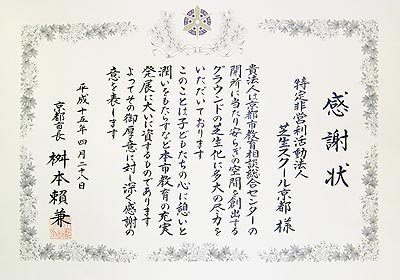 感謝状
特定非営利活動法人
芝生スクール京都 様
貴法人は京都市教育相談総合センターの
開所に当たり安らぎの空間を創出する
グラウンドの芝生化に多大の尽力を
いただいております
このことは子どもたちの心に憩いと
潤いをもたらすなど本市教育の充実
発展に大いに資するものであります
よってその御厚意に対し深く感謝の
意を表します
平成十五年四月二十八日
京都市長 桝本賴兼